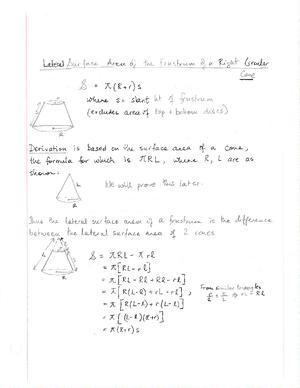 Lateral Surface Area of the frustrum of a Right Circular
Cone
S = π(R+r)s
where s = slant ht of frustrum
(excludes area of top + bottom discs)
Derivation is based on the surface area of a cone,
the formula for which is πRL, where R, L are as
shown.
We will prove this later.
Thus the lateral surface area of a frustrum is the difference
between the lateral surface area of 2 cones
S = πRL - πrl
= π[RL - rl]
= π[RL - Rl + Rl - rl]
= π[R(L-l) + rL - rl] ,
from similar triangles
= π[R(L-l) + r(L-l)]
= π[(L-l)(R+r)]
= π(R+r)s